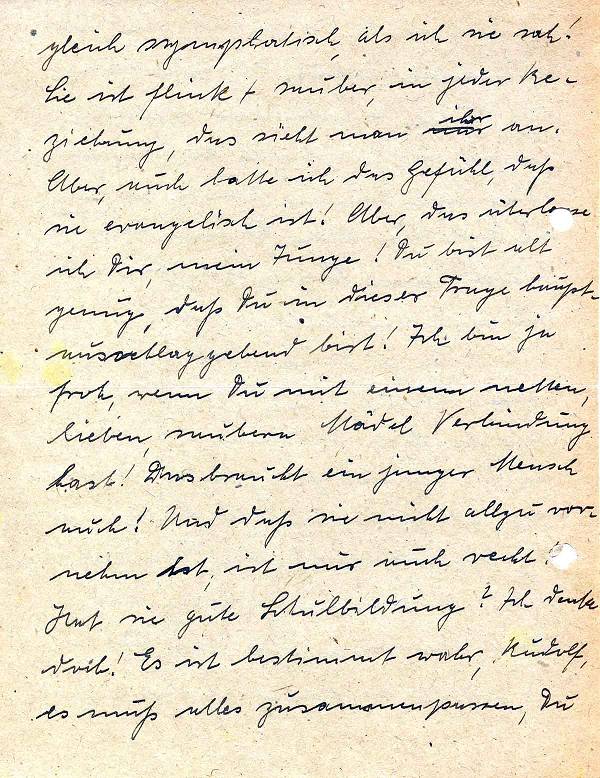 gleich sympathisch, als ich sie sah!
Sie ist flink + sauber, in jeder Be-
ziehung, das sieht man ihr an.
Aber, auch hatte ich das Gefühl, daß
sie evangelisch ist! Aber, das überlasse
ich Dir, mein Junge! Du bist alt
genug, daß Du in dieser Frage haupt-
ausschlaggebend bist! Ich bin ja
froh, wenn Du mit einem netten,
lieben, saubern Mädel Verbindung
hast! Das braucht ein junger Mensch
auch! Und daß sie nicht allzu vor-
nehm ist, ist mir auch recht!
Hat sie gute Schulbildung? Ich denke
doch! Es ist bestimmt wahr, Rudolf,
es muß alles zusammenpassen, Du